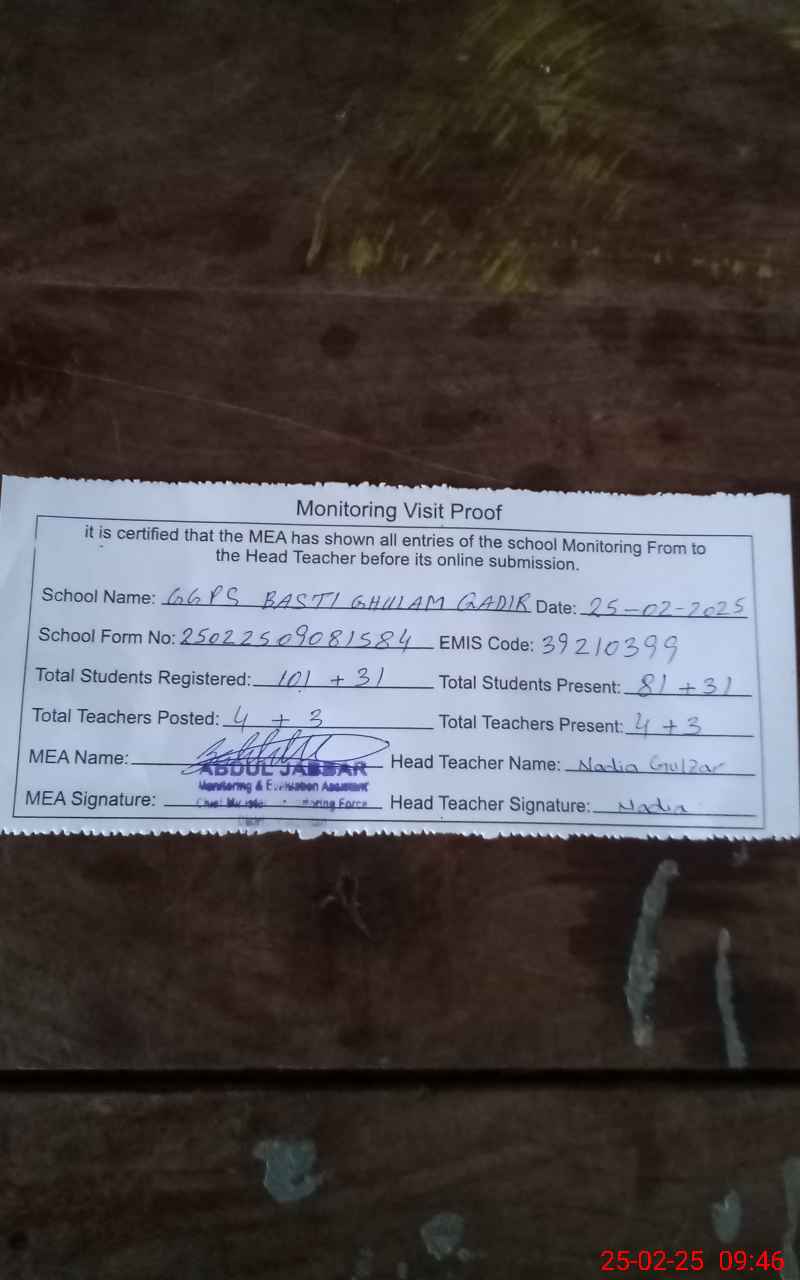 Monitoring Visit Proof
it is certified that the MEA has shown all entries of the school Monitoring From to
the Head Teacher before its online submission.
School Name: GGPS BASTI GHULAM QADIR Date: 25-02-2025
School Form No: 25022509081584 EMIS Code: 39210399
Total Students Registered: 101 + 31 Total Students Present: 81 + 31
Total Teachers Posted: 4 + 3 Total Teachers Present: 4 + 3
MEA Name: Head Teacher Name: Nadia Gulzar
ABDUL JABBAR
Monitoring & Evaluation Assistant
MEA Signature: Force Head Teacher Signature: Nadia
25-02-25 09:46